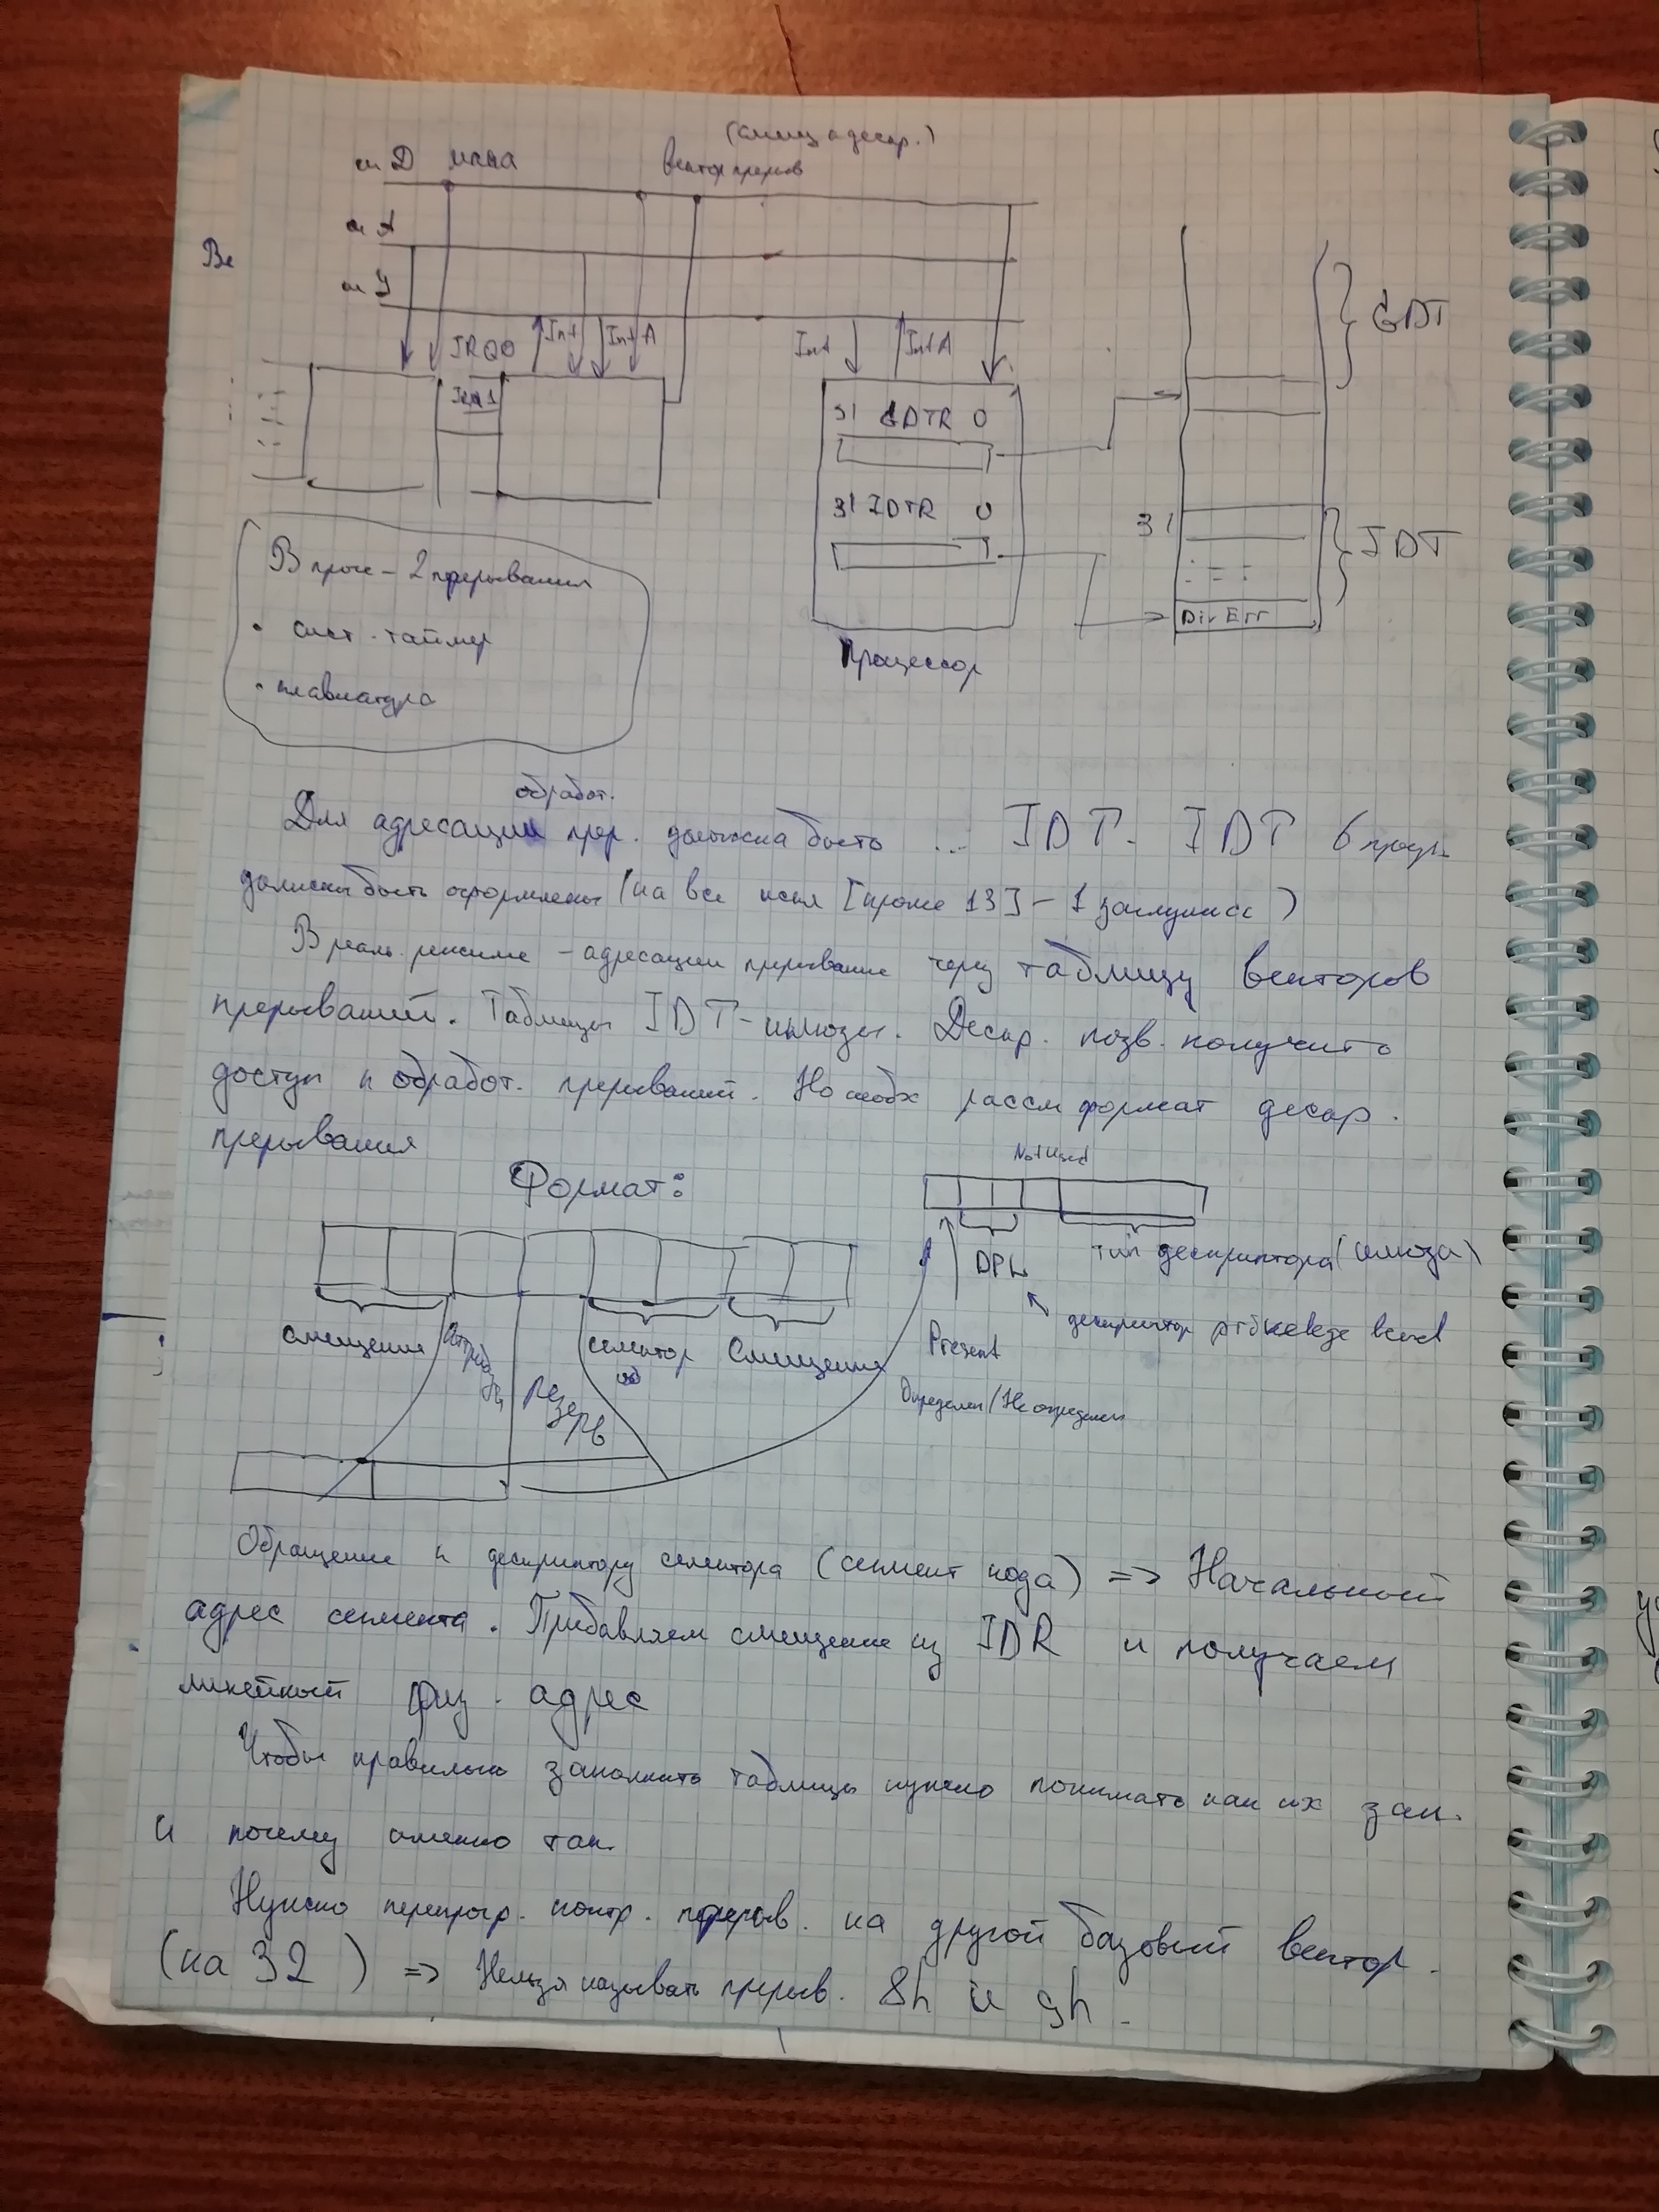 (смещ в дескр.)
ш Д шина
вектор прерыв
ш А
Ве
ш У
IRQ0 Int IntA
Int IntA
GDT
IRQ1
31 GDTR 0
31 IDTR 0
31
IDT
Div Err
Процессор
В прог – 2 прерывания
• сист. таймер
• клавиатура
обработ.
Для адресации прер. должна быть ... IDT. IDT в прогр.
должны быть оформлены (на все искл [кроме 13] – 1 заглушка)
В реал. режиме – адресации прерывание через таблицу векторов
прерываний. Таблицы IDT – шлюзы. Дескр. позв. получить
доступ к обработ. прерываний. Но необх рассм формат дескр.
прерывания
Формат:
Not Used
DPL
тип дескриптора (шлюза)
дескриптор privelege level
смещения
атрибуты
резерв
селектор
Смещения
Present
Определен/Не определен
Обращение к дескриптору селектора (сегмент кода) => Начальный
адрес сегмента. Прибавляем смещение из IDR и получаем
линейный физ. адрес
Чтобы правильно заполнить таблицы нужно понимать как их зап.
и почему именно так.
Нужно перепрогр. контр. прерыв. на другой базовый вектор.
(на 32) => Нельзя называть прерыв. 8h и 9h.